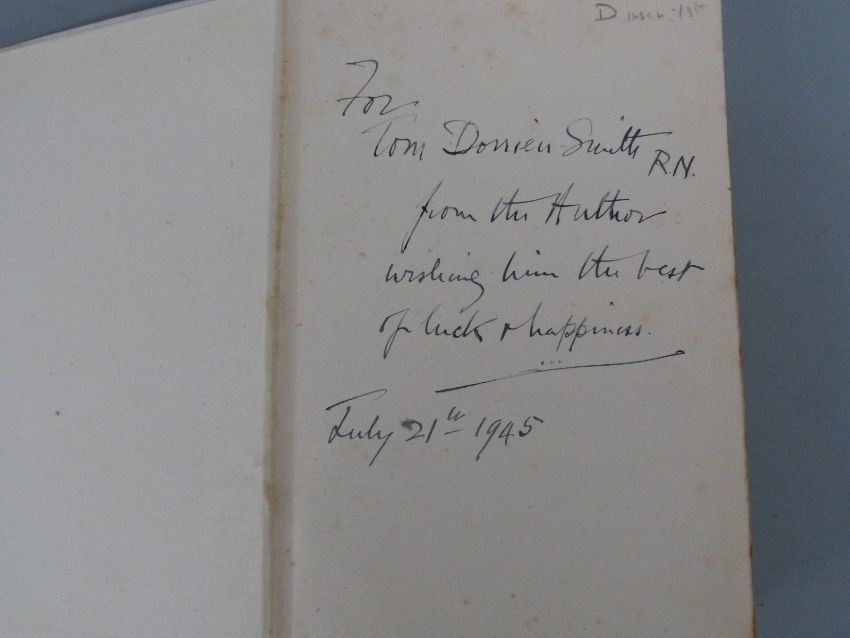 D inscr. 1st
For
Tom Dorrien-Smith
R.N.
from the Author
wishing him the best
of luck & happiness.
July 21st 1945